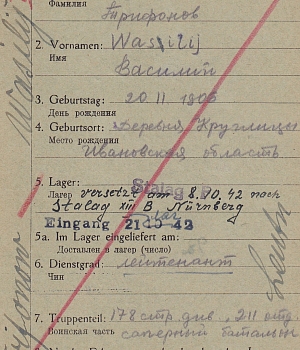 Фамилия
Трифонов
2. Vornamen: Wassilij
Имя
Василий
3. Geburtstag: 20 11 1906
День рождения
4. Geburtsort: Деревня Круглицы
Место рождения
Ивановская область
5. Lager: Stalag
Лагер versetzt am 8.10.42 nach
Stalag XIII B Nürnberg
Eingang 21 10 42
5a. Im Lager eingeliefert am:
Доставлен в лагер (число)
6. Dienstgrad: лейтенант
Чин
7. Truppenteil: 178 стр. див, 211 отд.
Воинская часть саперный батальон
Wassily